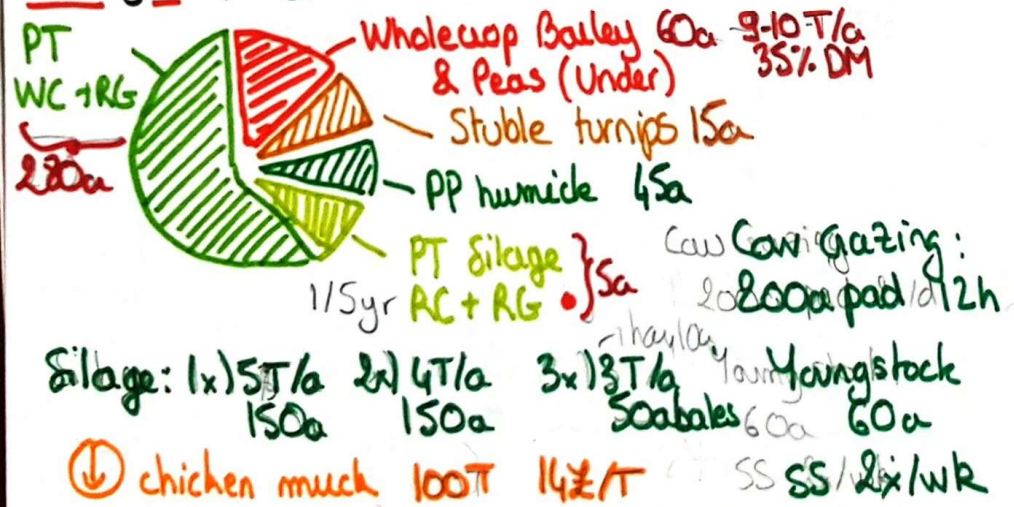 PT
WC + RG
280a
Wholecrop Barley 60a 9-10 T/a
& Peas (Under) 35% DM
Stuble turnips 15a
PP humide 45a
PT Silage
1/5yr RC + RG } 5a
Cow Grazing:
200a pad / 12h
Silage: 1x) 5T/a 2x) 4T/a 3x) 3T/a
150a 150a 50a bales
Youngstock
60a
SS 2x/wk
↓ chicken muck 100T 14£/T